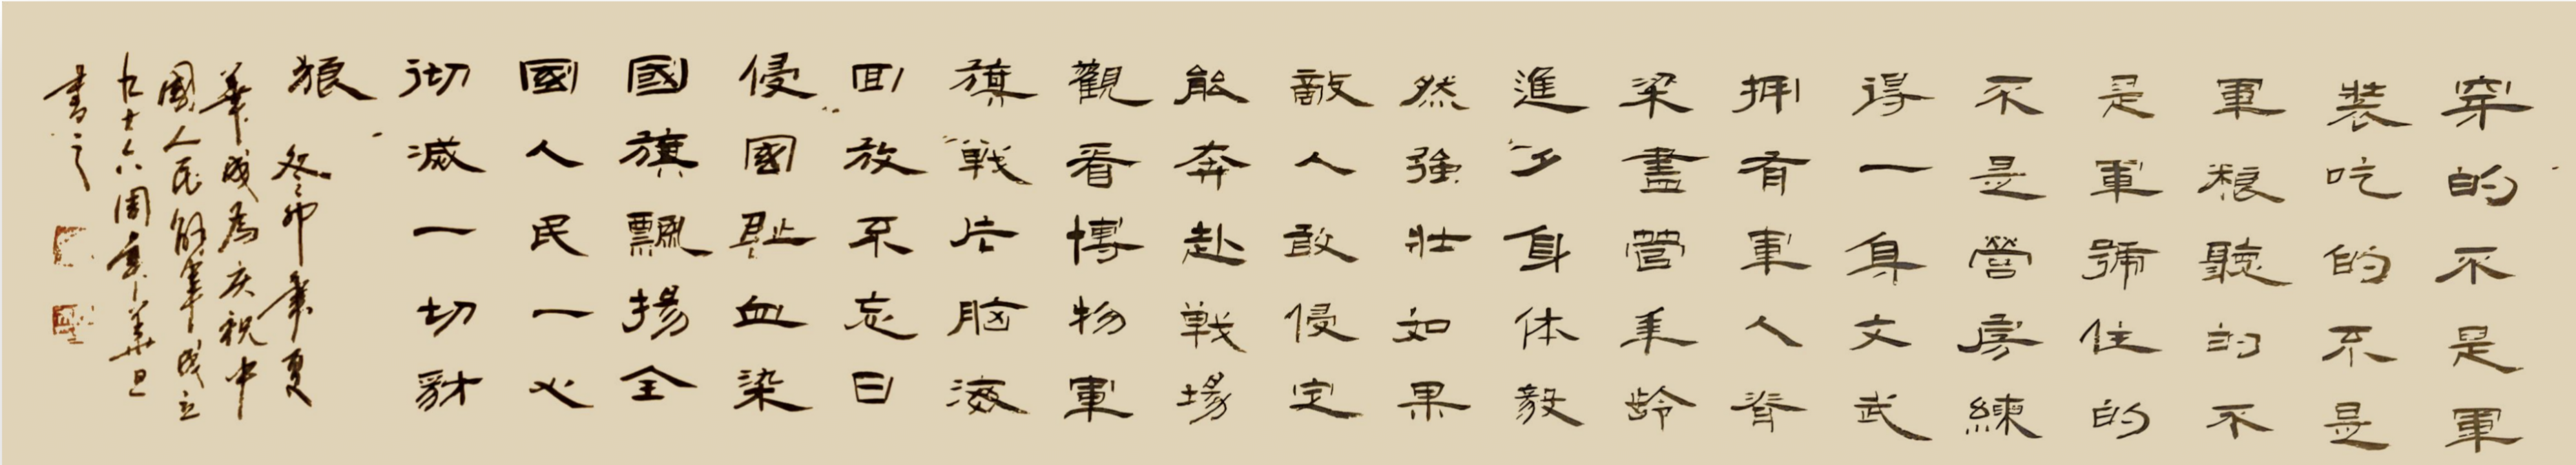 穿的不是軍
装吃的不是
軍粮聽的不
是軍號住的
不是營房練
得一身文武
拥有軍人脊
梁盡管年龄
進夕身体毅
然強壮如果
敵人敢侵定
能奔赴戰場
觀看博物軍
旗戰片脑海
回放不忘日
侵國耻血染
國旗飄揚全
國人民一心
彻滅一切豺
狼 癸卯年夏
華成為庆祝中
國人民解軍成立
九十六周年華旦
書之